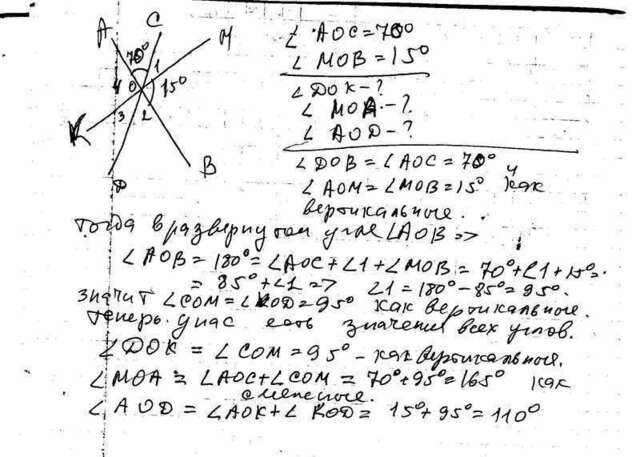 A C M
70°
1
4 O 15°
K 3 2
D B
∠ AOC = 70°
∠ MOB = 15°
∠ DOK - ?
∠ MOA - ?
∠ AOD - ?
∠ DOB = ∠ AOC = 70° и
∠ AOM = ∠ MOB = 15° как
вертикальные.
Тогда в развернутом угле ∠AOB =>
∠ AOB = 180° = ∠AOC + ∠1 + ∠MOB = 70° + ∠1 + 15° =
= 85° + ∠1 => ∠1 = 180° - 85° = 95°.
значит ∠COM = ∠KOD = 95° как вертикальные.
теперь у нас есть значения всех углов.
∠ DOK = ∠ COM = 95° - как вертикальные.
∠ MOA = ∠AOC + ∠COM = 70° + 95° = 165° как
смежные.
∠ AOD = ∠AOK + ∠ KOD = 15° + 95° = 110°